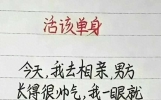 活该单身
今天,我去相亲,男方
长得很帅气,我一眼就